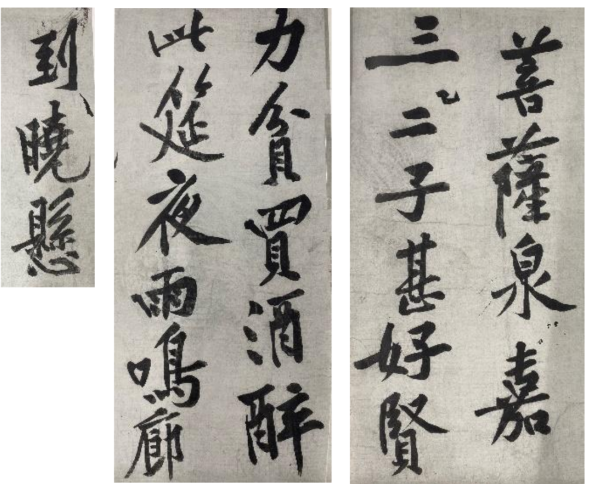 菩薩泉嘉
三二子甚好賢
力貧買酒醉
此筵夜雨鳴廊
到曉懸